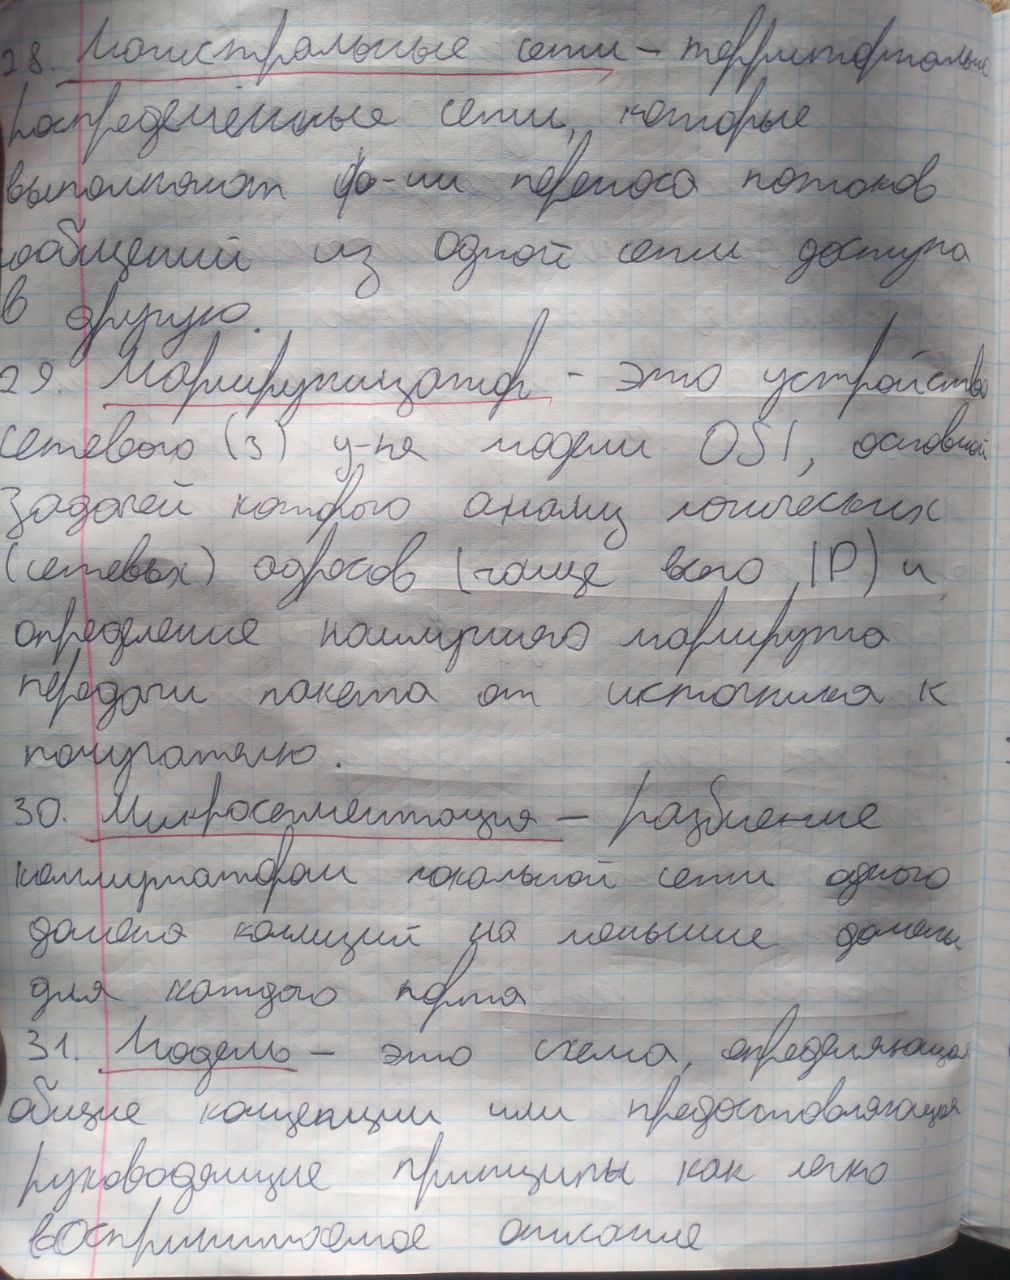 28. Магистральные сети – территориально
распределённые сети, которые
выполняют ф-ии переноса потоков
сообщений из одной сети доступа
в другую.
29. Маршрутизатор – это устройство
сетевого (3) у-ня модели OSI, основной
задачей которого анализ логических
(сетевых) адресов (чаще всего IP) и
определение наилучшего маршрута
передачи пакета от источника к
получателю.
30. Микросегментация – разбиение
коммутатором локальной сети одного
домена коллизий на меньшие домены
для каждого порта
31. Модель – это схема, определяющая
общие концепции или предоставляющая
руководящие принципы как легко
воспринимаемое описание